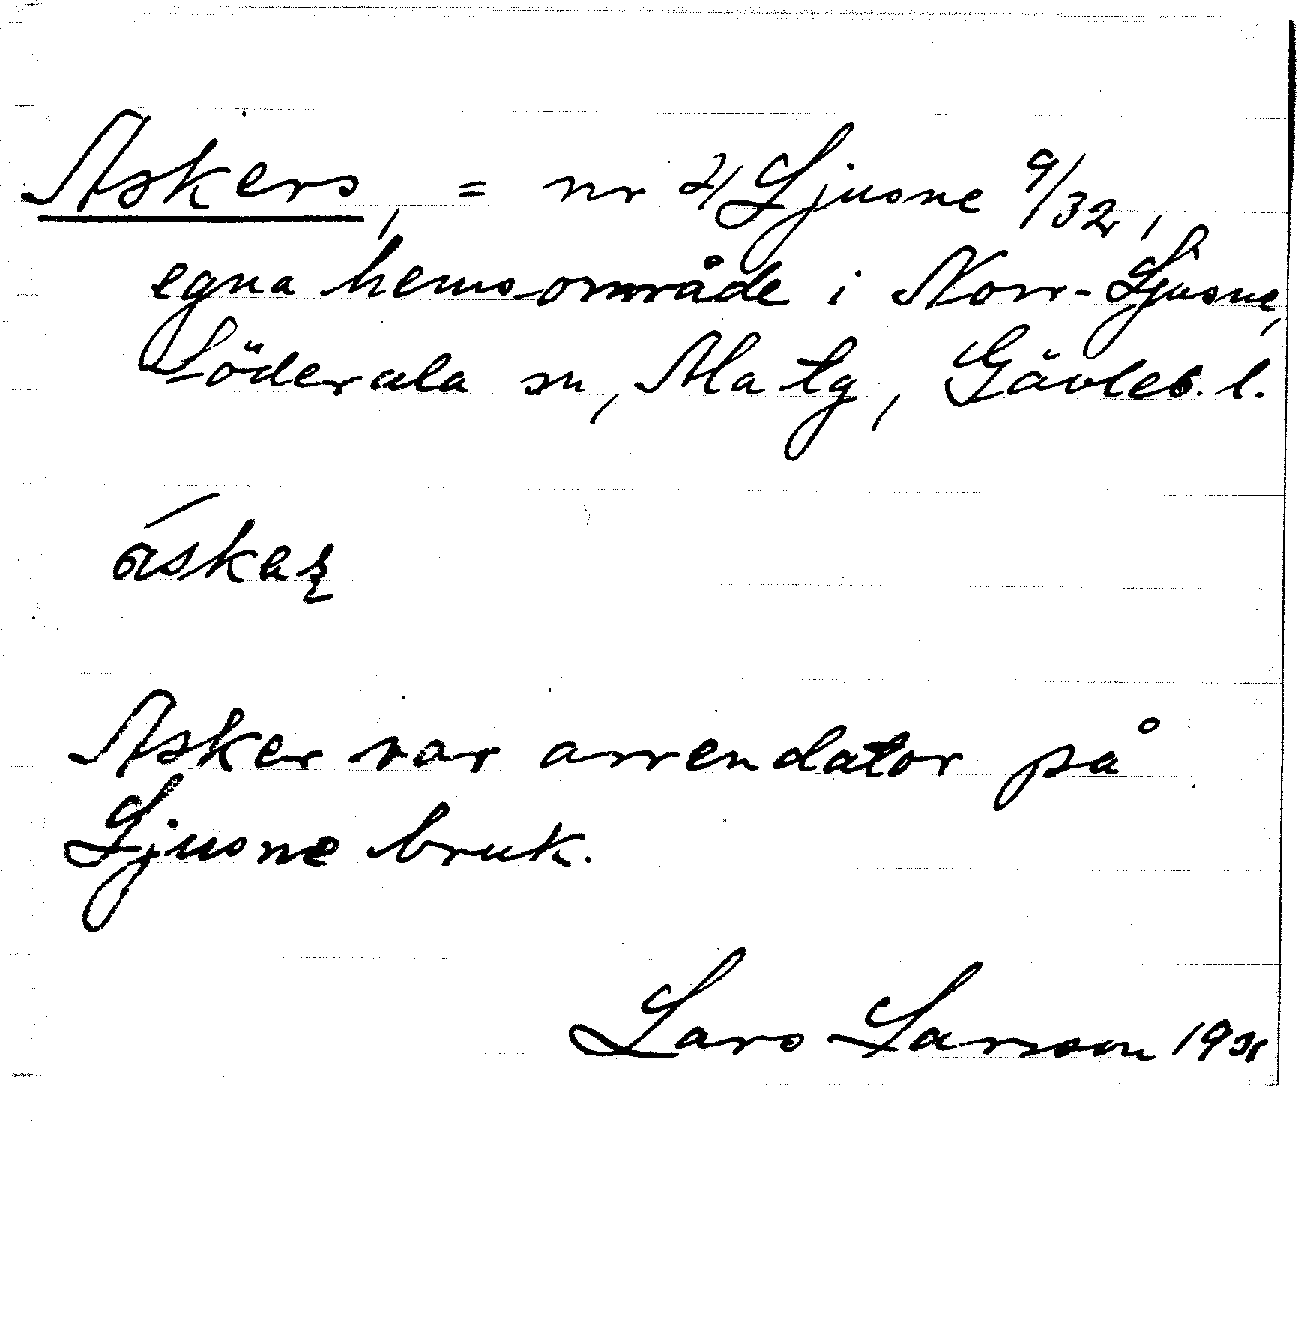 Askers, = nr 4 Ljusne 9/32,
egna hemsområde i Norr-Ljusne,
Söderala sn, Ala tg, Gävleb. l.
áskaꞩ
Asker var arrendator på
Ljusne bruk.
Lars Larsson 19